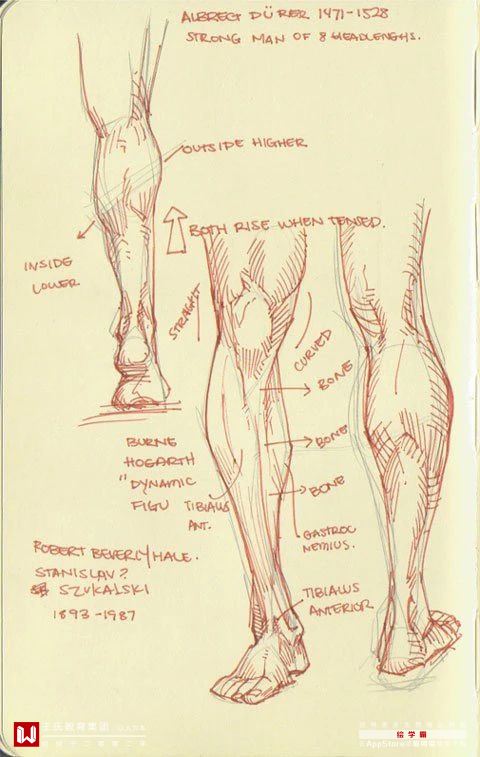 ALBRECT DÜRER 1471-1528
STRONG MAN OF 8 HEADLENGHS.
OUTSIDE HIGHER
BOTH RISE WHEN TENSED.
INSIDE
LOWER
STRAIGHT
CURVED
BONE
BONE
BONE
BURNE
HOGARTH
"DYNAMIC
FIGU
TIBIALIS
ANT.
GASTROC
NEMIUS.
ROBERT BEVERLY HALE.
STANISLAV?
SZUKALSKI
1893-1987
TIBIALIS
ANTERIOR
王氏教育集团
绘学霸